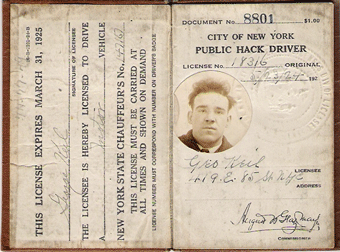 THIS LICENSE EXPIRES MARCH 31, 1925
SIGNATURE OF LICENSEE
THE LICENSEE IS HEREBY LICENSED TO DRIVE
A VEHICLE
NEW YORK STATE CHAUFFEUR'S No.
THIS LICENSE MUST BE CARRIED AT
ALL TIMES AND SHOWN ON DEMAND
LICENSE NUMBER MUST CORRESPOND WITH NUMBER ON DRIVER'S BADGE
DOCUMENT No 8801 $1.00
CITY OF NEW YORK
PUBLIC HACK DRIVER
LICENSE No. 18316 ORIGINAL
192
Geo Keil
LICENSEE
419 E. 85 St NYC
ADDRESS
COMMISSIONER